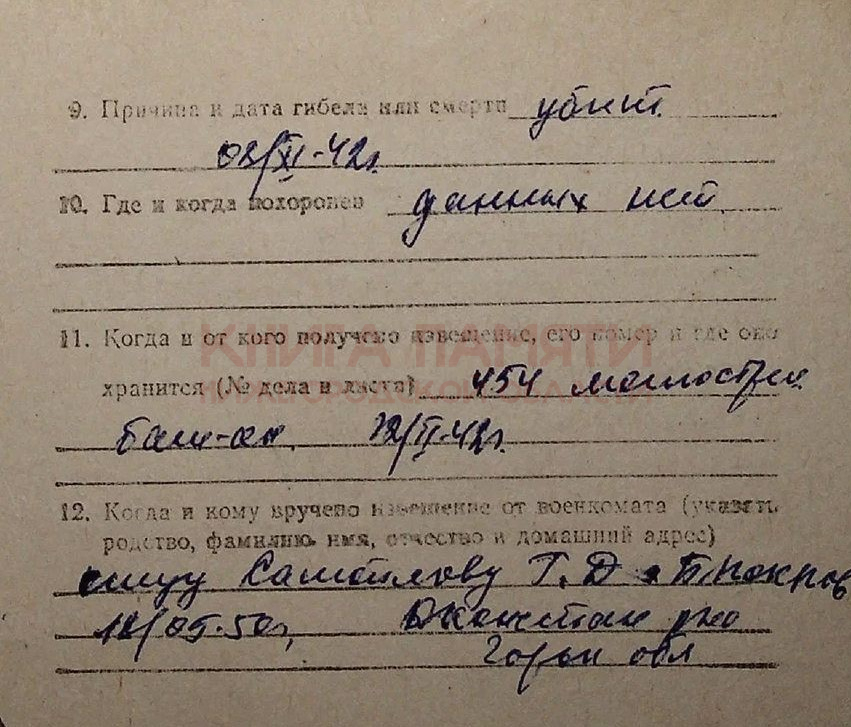 9. Причина и дата гибели или смерти убит
02/XI-42г.
10. Где и когда похоронен данных нет
11. Когда и от кого получено извещение, его номер и где оно
КНИГА ПАМЯТИ
хранится (№ дела и листа) 454
бат-он 12/II-42г.
12. Когда и кому вручено извещение от военкомата (указать
родство, фамилию, имя, отчество и домашний адрес)
отцу Самойлову Т. Д.
Горьк обл